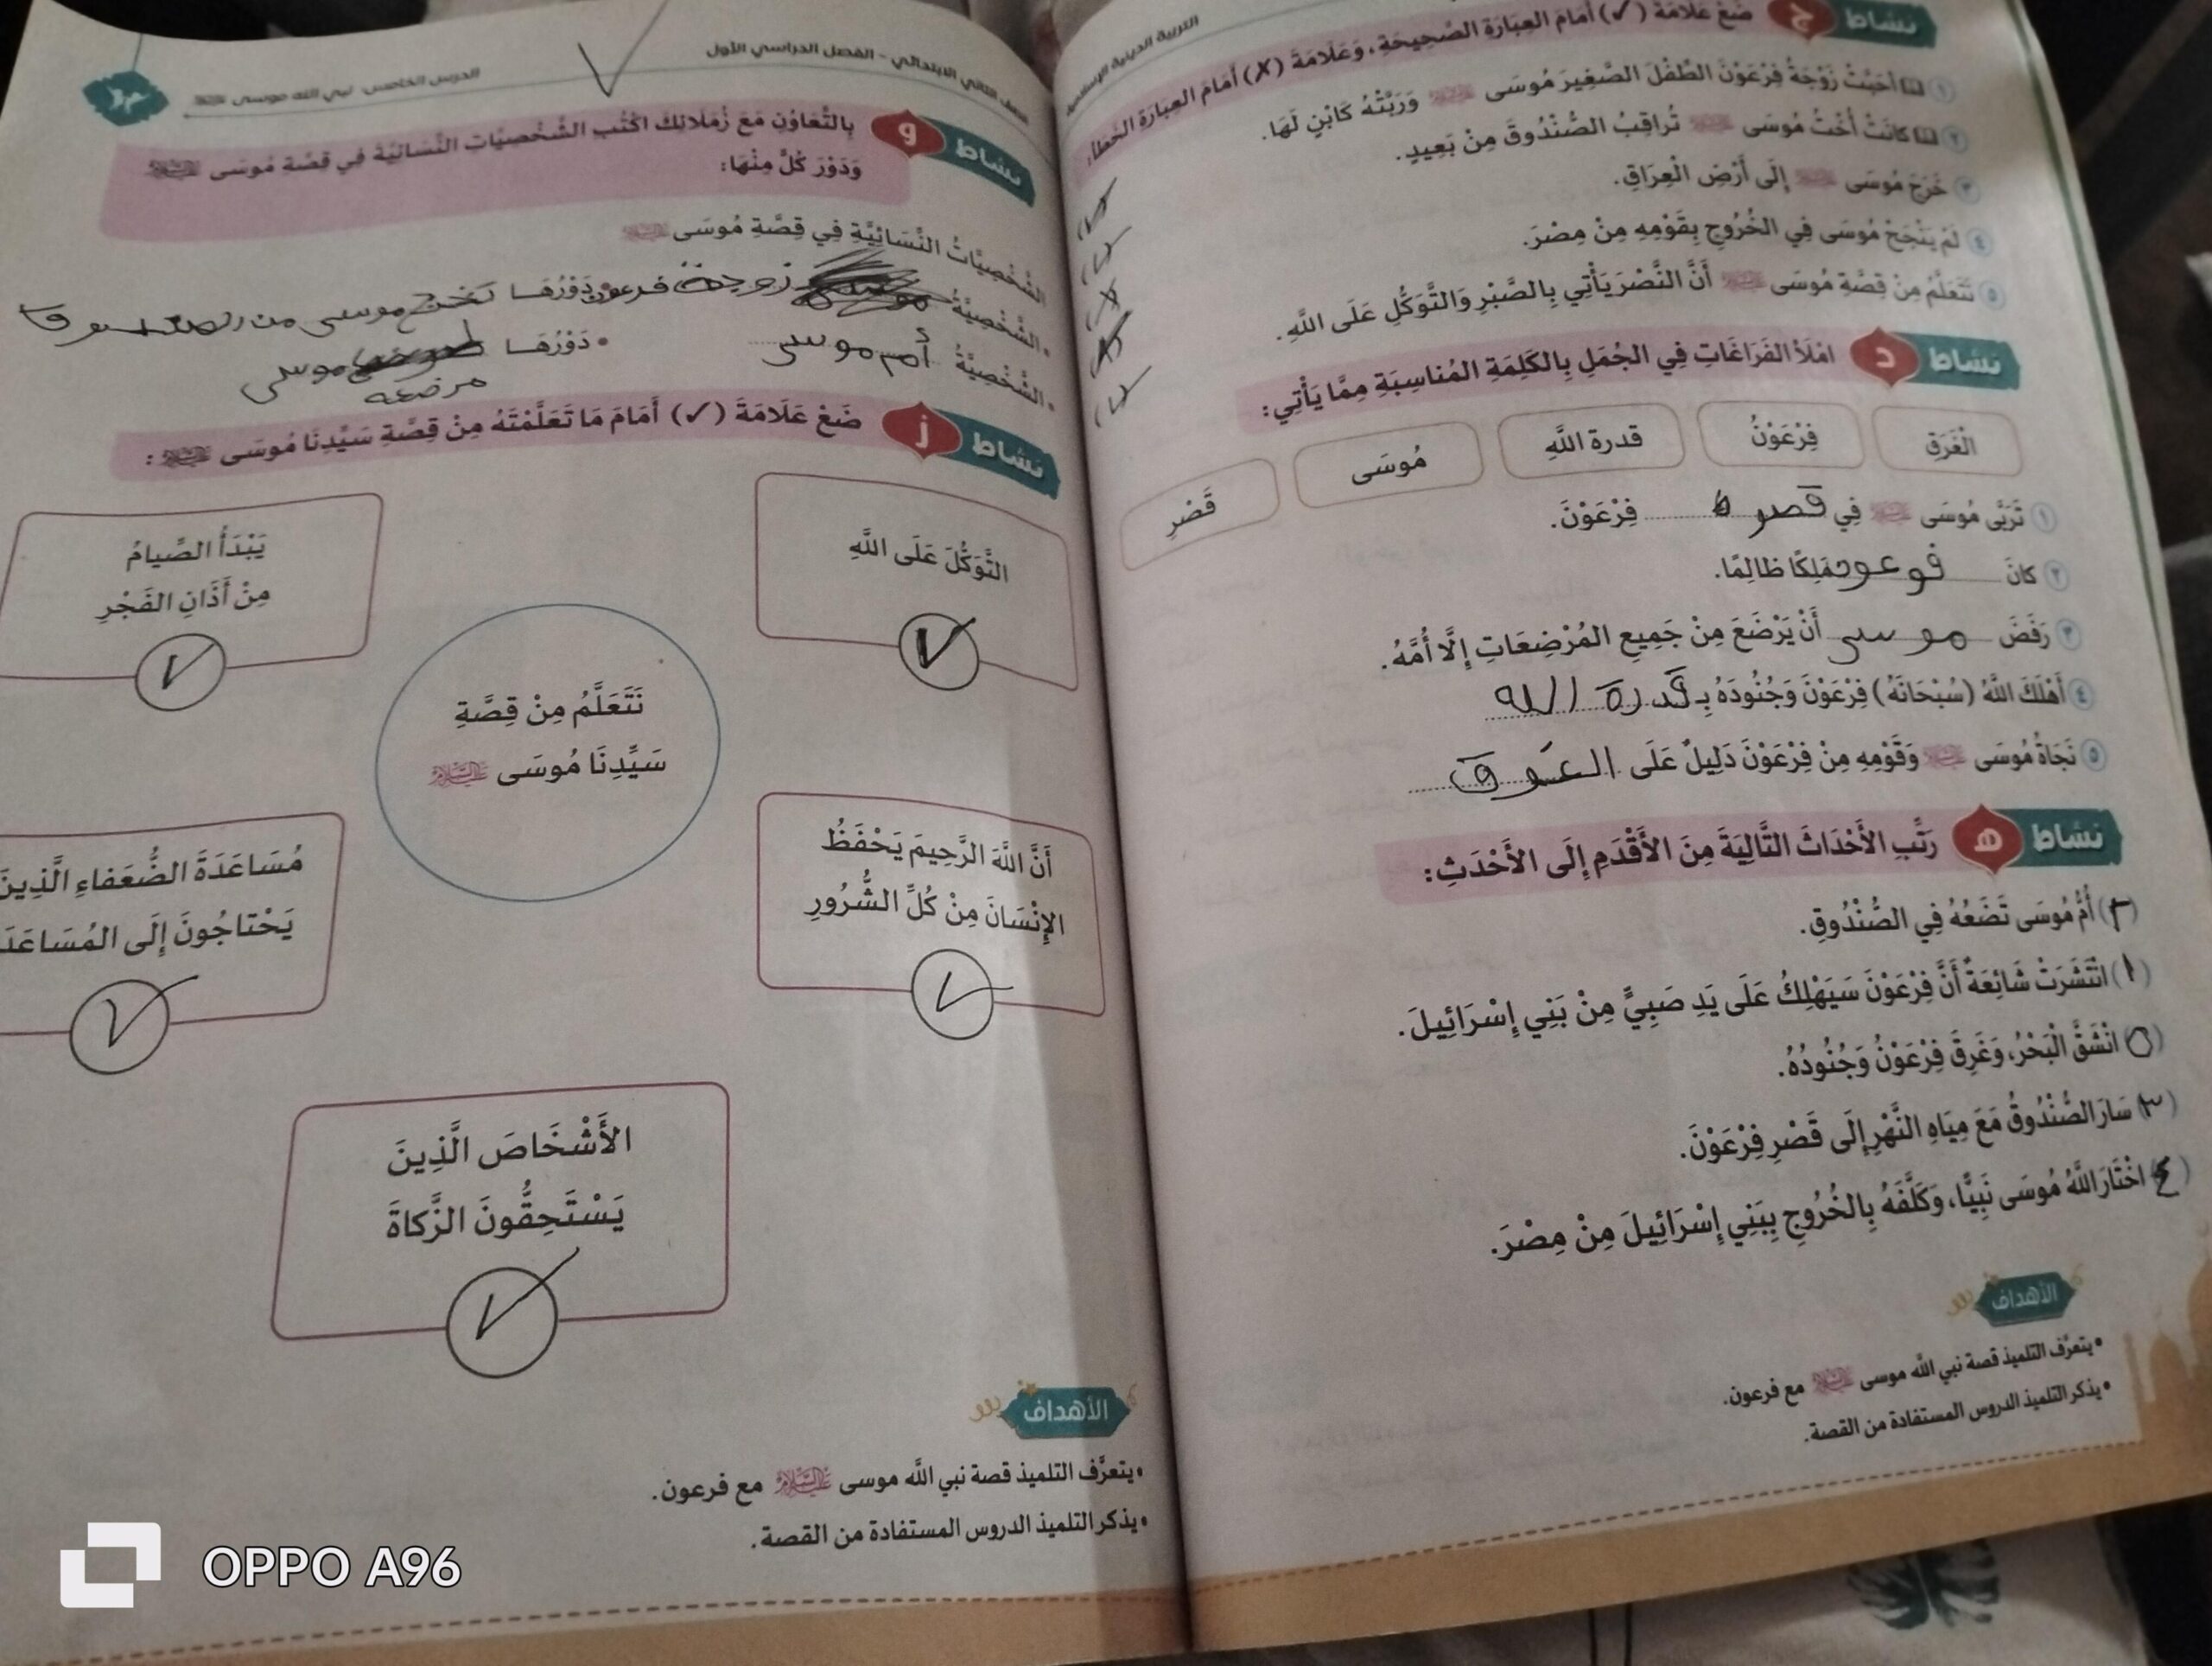 التربية الدينية الإسلامية
نشاط ج ضَعْ عَلَامَةَ (✓) أَمَامَ العِبَارَةِ الصَّحِيحَةِ، وَعَلَامَةَ (✗) أَمَامَ العِبَارَةِ الخَطَأِ:
١ أَحَبَّتْ زَوْجَةُ فِرْعَوْنَ الطِّفْلَ الصَّغِيرَ مُوسَى وَرَبَّتْهُ كَابْنٍ لَهَا.
٢ كَانَتْ أُخْتُ مُوسَى تُرَاقِبُ الصُّنْدُوقَ مِنْ بَعِيدٍ.
٣ خَرَجَ مُوسَى إِلَى أَرْضِ الْعِرَاقِ.
٤ لَمْ يَنْجَحْ مُوسَى فِي الْخُرُوجِ بِقَوْمِهِ مِنْ مِصْرَ.
٥ نَتَعَلَّمُ مِنْ قِصَّةِ مُوسَى أَنَّ النَّصْرَ يَأْتِي بِالصَّبْرِ وَالتَّوَكُّلِ عَلَى اللَّهِ.
نشاط د امْلَأْ الفَرَاغَاتِ فِي الجُمَلِ بِالكَلِمَةِ المُنَاسِبَةِ مِمَّا يَأْتِي:
الْغَرَقِ فِرْعَوْنُ قدرة اللَّهِ مُوسَى قَصْرِ
١ تَرَبَّى مُوسَى فِي قصر فِرْعَوْنَ.
٢ كانَ فوعود مَلِكًا ظالِمًا.
٣ رَفَضَ موسى أَنْ يَرْضَعَ مِنْ جَمِيعِ المُرْضِعَاتِ إِلَّا أُمَّهُ.
٤ أَهْلَكَ اللَّهُ (سُبْحَانَهُ) فِرْعَوْنَ وَجُنُودَهُ بِـ قدرة الله
٥ نَجَاةُ مُوسَى وَقَوْمِهِ مِنْ فِرْعَوْنَ دَلِيلٌ عَلَى الغرق
نشاط هـ رَتِّبِ الأَحْدَاثَ التَّالِيَةَ مِنَ الأَقْدَمِ إِلَى الأَحْدَثِ:
(٢) أُمُّ مُوسَى تَضَعُهُ فِي الصُّنْدُوقِ.
(١) انْتَشَرَتْ شَائِعَةٌ أَنَّ فِرْعَوْنَ سَيَهْلِكُ عَلَى يَدِ صَبِيٍّ مِنْ بَنِي إِسْرَائِيلَ.
(٥) انْشَقَّ الْبَحْرُ، وَغَرِقَ فِرْعَوْنُ وَجُنُودُهُ.
(٣) سَارَ الصُّنْدُوقُ مَعَ مِيَاهِ النَّهْرِ إِلَى قَصْرِ فِرْعَوْنَ.
(٤) اخْتَارَ اللَّهُ مُوسَى نَبِيًّا، وَكَلَّفَهُ بِالْخُرُوجِ بِبَنِي إِسْرَائِيلَ مِنْ مِصْرَ.
الأهداف
• يتعرَّف التلميذ قصة نبي الله موسى مع فرعون.
• يذكر التلميذ الدروس المستفادة من القصة.
الصف الثاني الابتدائي - الفصل الدراسي الأول
الدرس الخامس: نبي الله موسى
نشاط و بِالتَّعَاوُنِ مَعَ زُمَلَائِكَ اكْتُبِ الشَّخْصِيَّاتِ النِّسَائِيَّةَ فِي قِصَّةِ مُوسَى
وَدَوْرَ كُلٍّ مِنْهَا:
الشَّخْصِيَّاتُ النِّسَائِيَّةِ فِي قِصَّةِ مُوسَى
• الشَّخْصِيَّةُ زوجة فرعون • دَوْرُهَا تخرج موسى من الصندوق
• الشَّخْصِيَّةُ أم موسى • دَوْرُهَا موسى
مرضعه
نشاط ز ضَعْ عَلَامَةَ (✓) أَمَامَ مَا تَعَلَّمْتَهُ مِنْ قِصَّةِ سَيِّدِنَا مُوسَى عليه السلام:
التَّوَكُّلَ عَلَى اللَّهِ
يَبْدَأُ الصِّيامُ
مِنْ أَذَانِ الفَجْرِ
نَتَعَلَّمُ مِنْ قِصَّةِ
سَيِّدِنَا مُوسَى عليه السلام
أَنَّ اللَّهَ الرَّحِيمَ يَحْفَظُ
الإِنْسَانَ مِنْ كُلِّ الشُّرُورِ
مُسَاعَدَةَ الضُّعَفاءِ الَّذِينَ
يَحْتَاجُونَ إِلَى المُسَاعَدَ
الأَشْخَاصَ الَّذِينَ
يَسْتَحِقُّونَ الزَّكاةَ
الأهداف
• يتعرَّف التلميذ قصة نبي الله موسى عليه السلام مع فرعون.
• يذكر التلميذ الدروس المستفادة من القصة.
OPPO A96